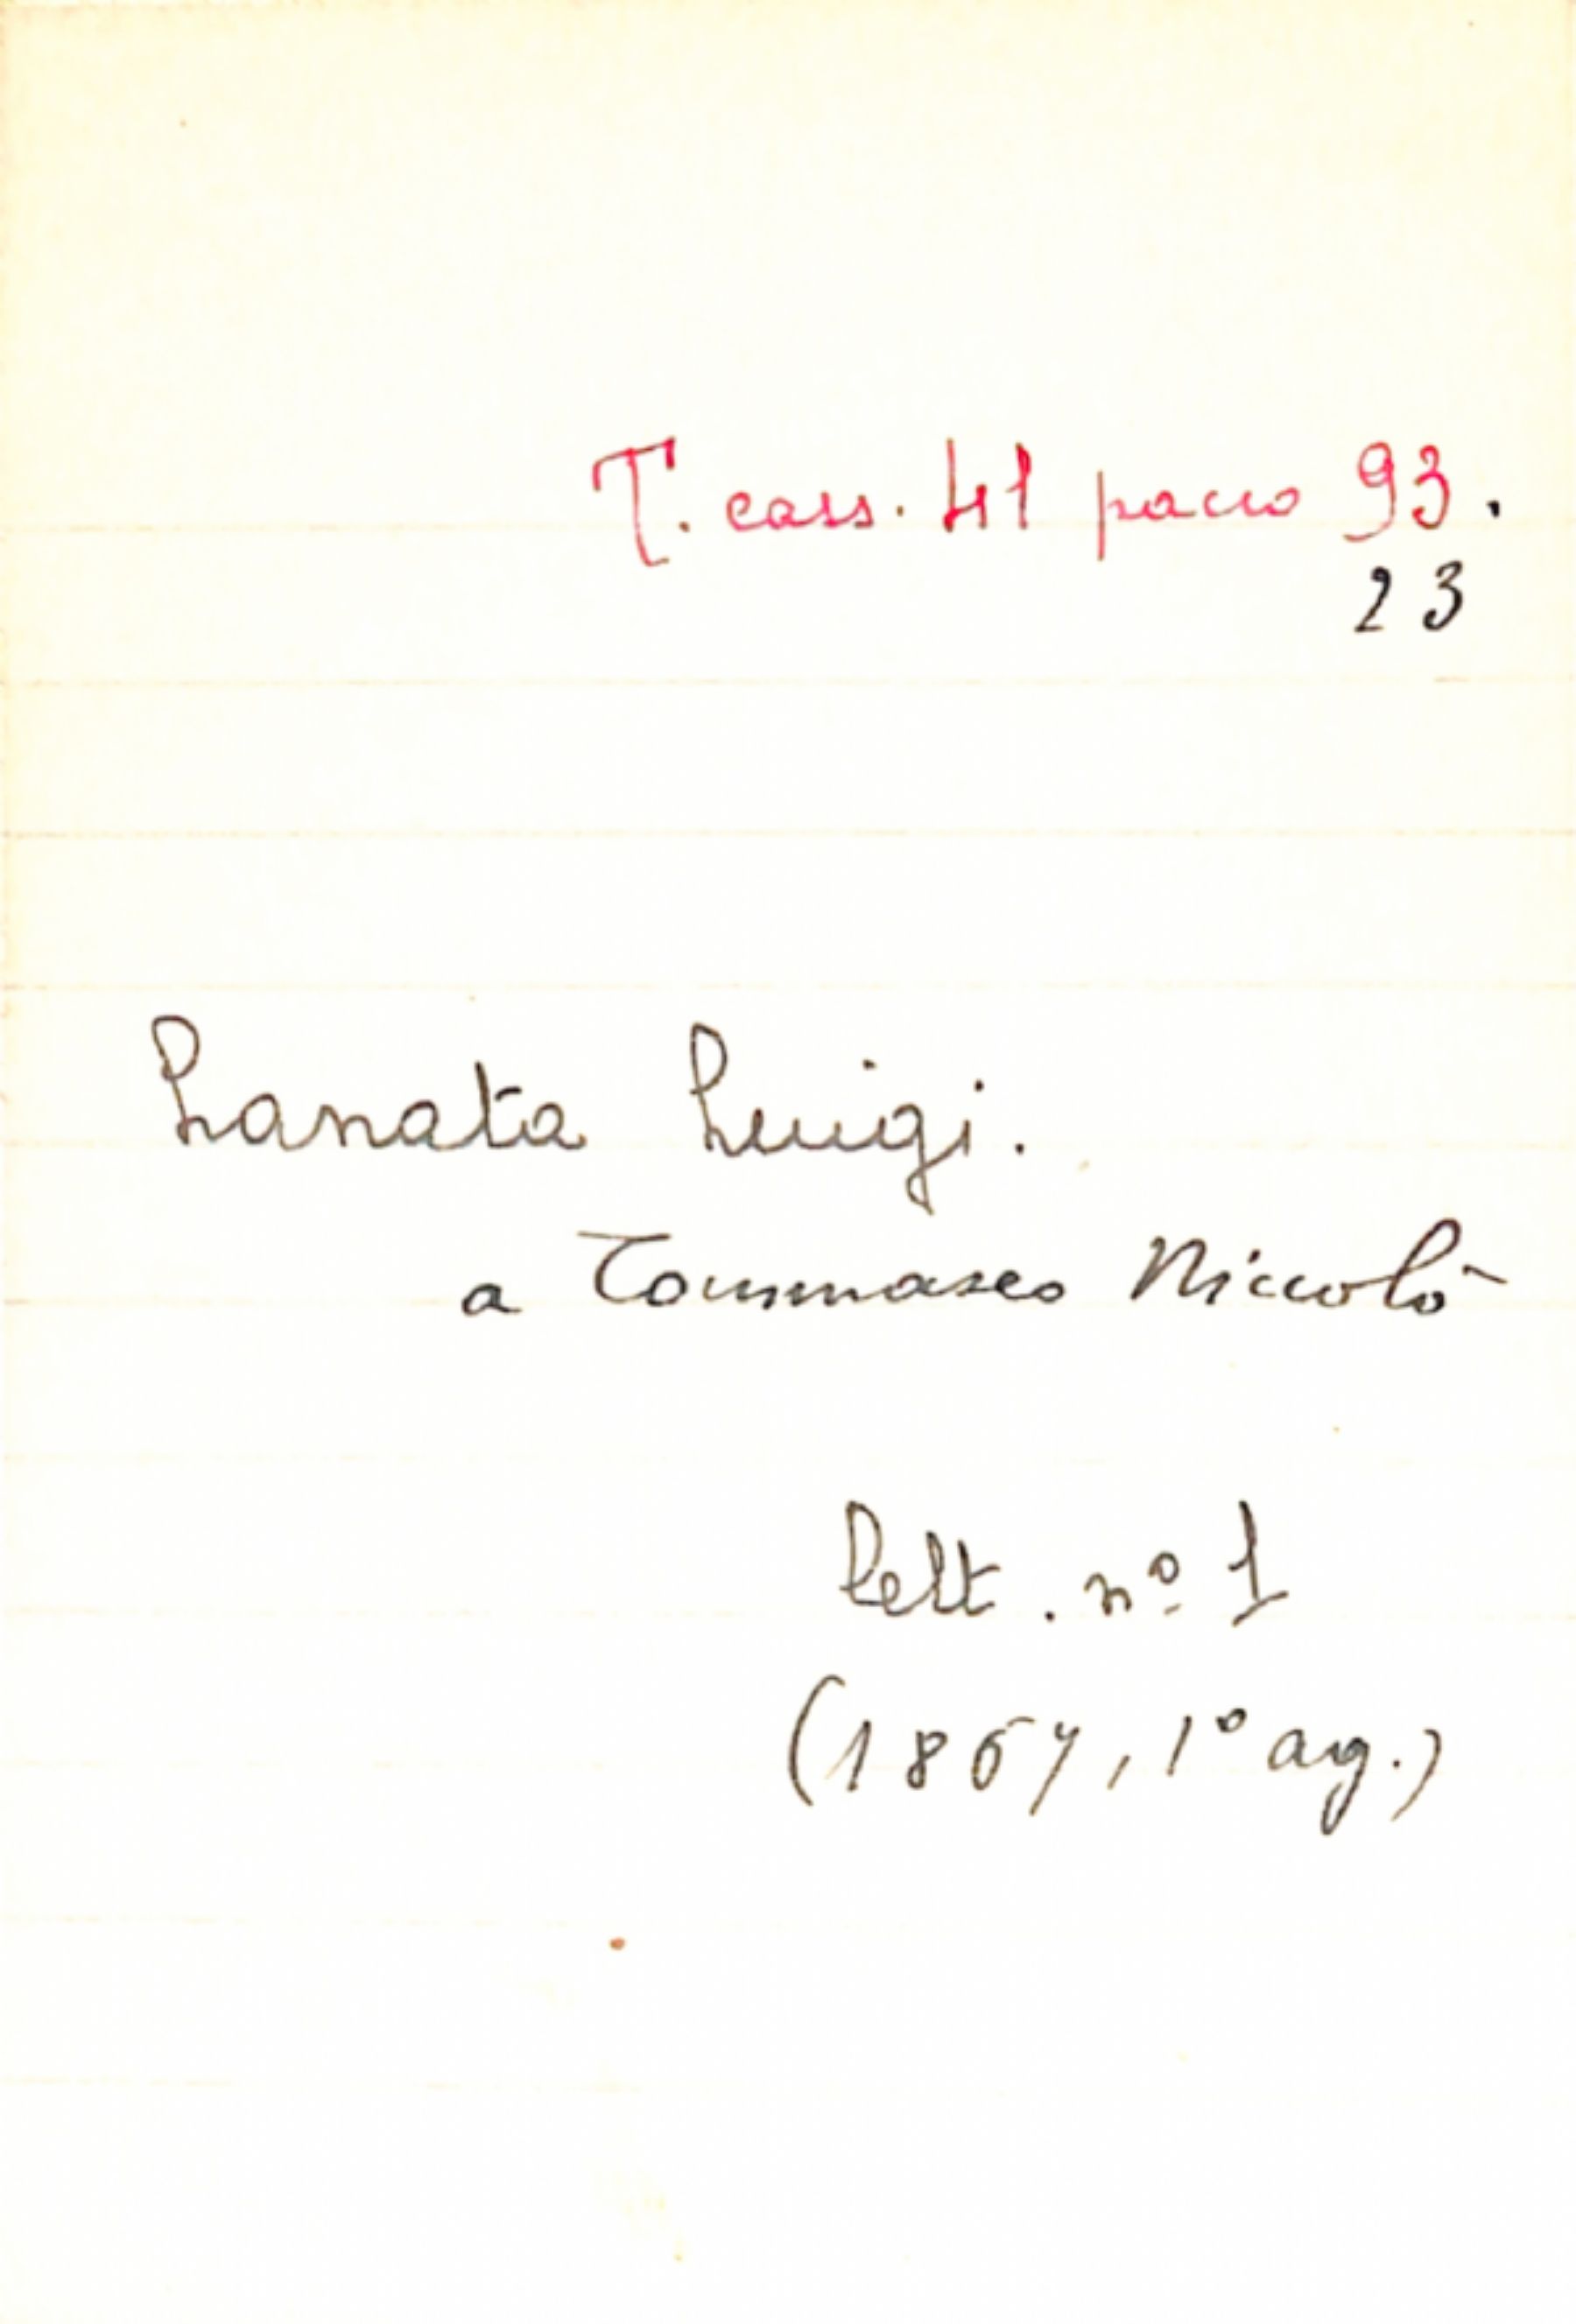 T. cass. 41 pacco 93.
23
Lanata Luigi.
a Tommaseo Niccolò
lett. nº 1
(1867, 1º ag.)